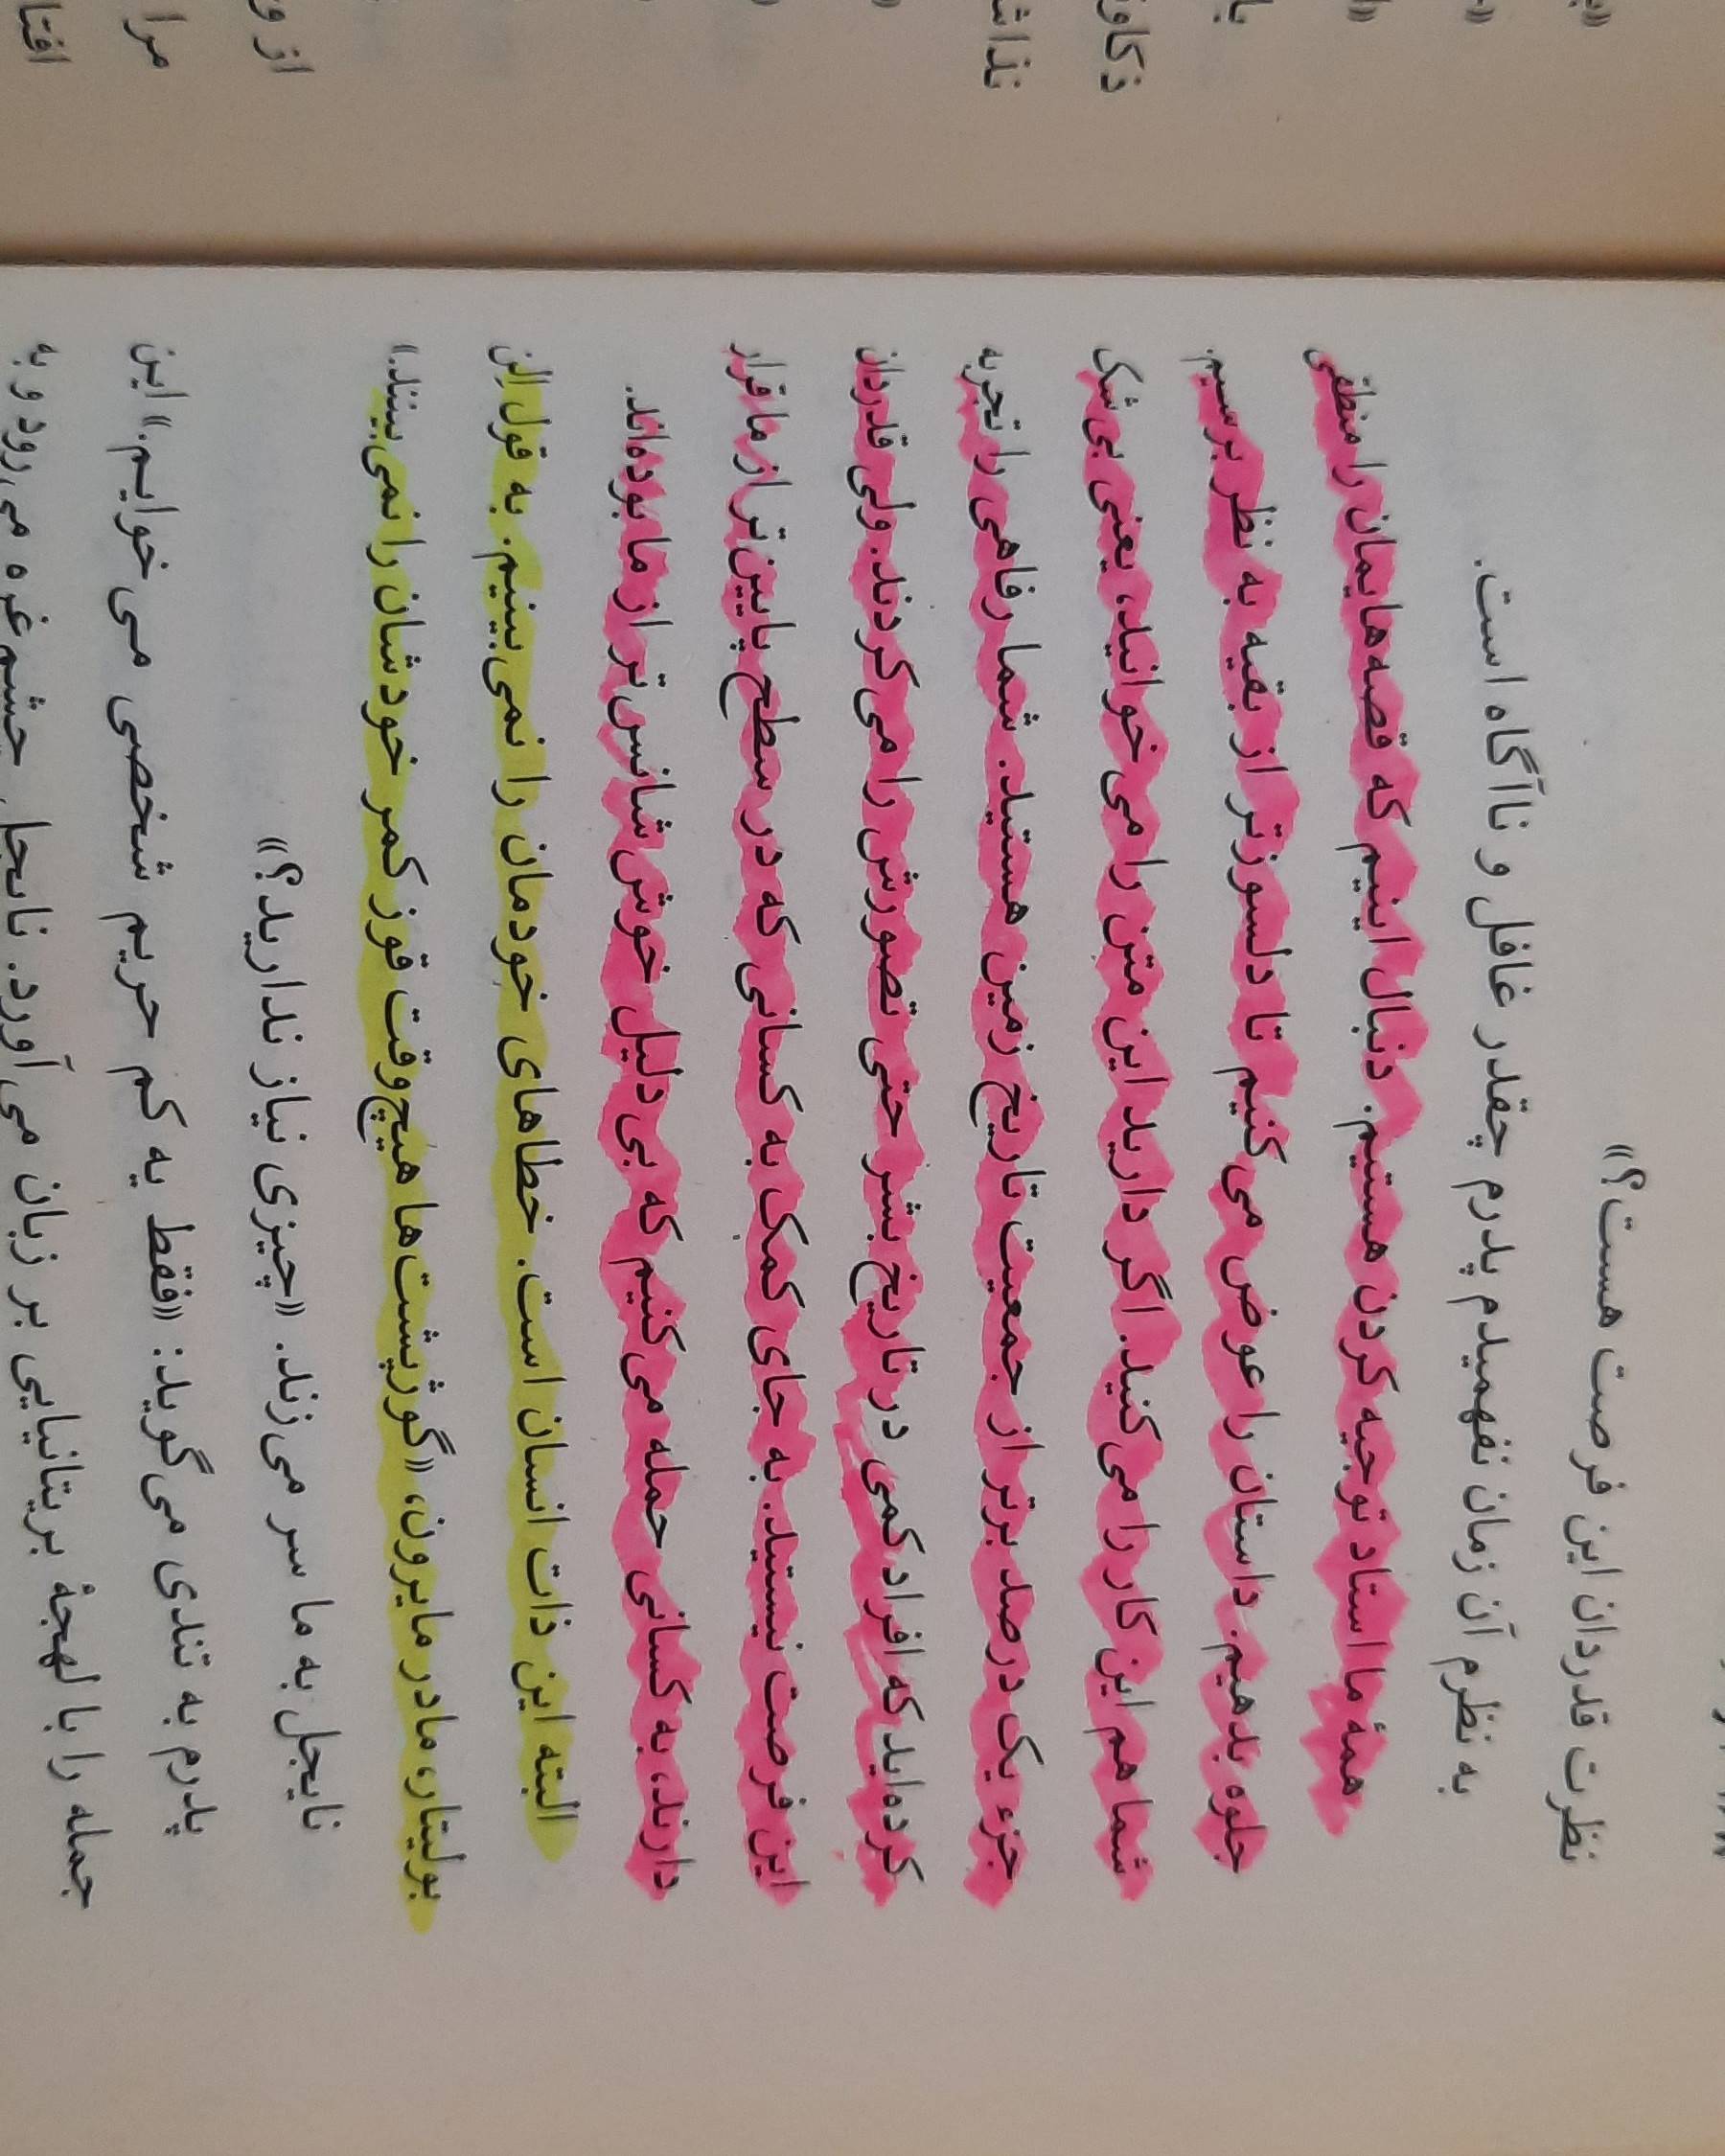 نظرت قدردان این فرصت هست؟»
به نظرم آن زمان نفهمیدم پدرم چقدر غافل و ناآگاه است.
همهٔ ما استاد توجیه کردن هستیم. دنبال اینیم که قصه‌هایمان را منطقی
جلوه بدهیم. داستان را عوض می‌کنیم تا دلسوزتر از بقیه به نظر برسیم.
شما هم این کار را می‌کنید. اگر دارید این متن را می‌خوانید، یعنی بی‌شک
جزء یک درصد برتر از جمعیت تاریخ زمین هستید. شما رفاهی را تجربه
کرده‌اید که افراد کمی در تاریخ بشر حتی تصورش را می‌کردند. ولی قدردان
این فرصت نیستید. به جای کمک به کسانی که در سطح پایین‌تر از ما قرار
دارند، به کسانی حمله می‌کنیم که بی‌دلیل خوش‌شانس‌تر از ما بوده‌اند.
البته این ذات انسان است. خطاهای خودمان را نمی‌بینیم. به قول الن
بولیتار، مادر مایرون، «گوژپشت‌ها هیچ‌وقت قوز کمر خودشان را نمی‌بینند.»
نایجل به ما سر می‌زند. «چیزی نیاز ندارید؟»
پدرم به تندی می‌گوید: «فقط یه کم حریم شخصی می‌خوایم.» این
جمله را با لهجهٔ بریتانیایی بر زبان می‌آورد. نایجل چشم‌غره می‌رود و به
ذکاو
نذاش
از و
مرا
افتا